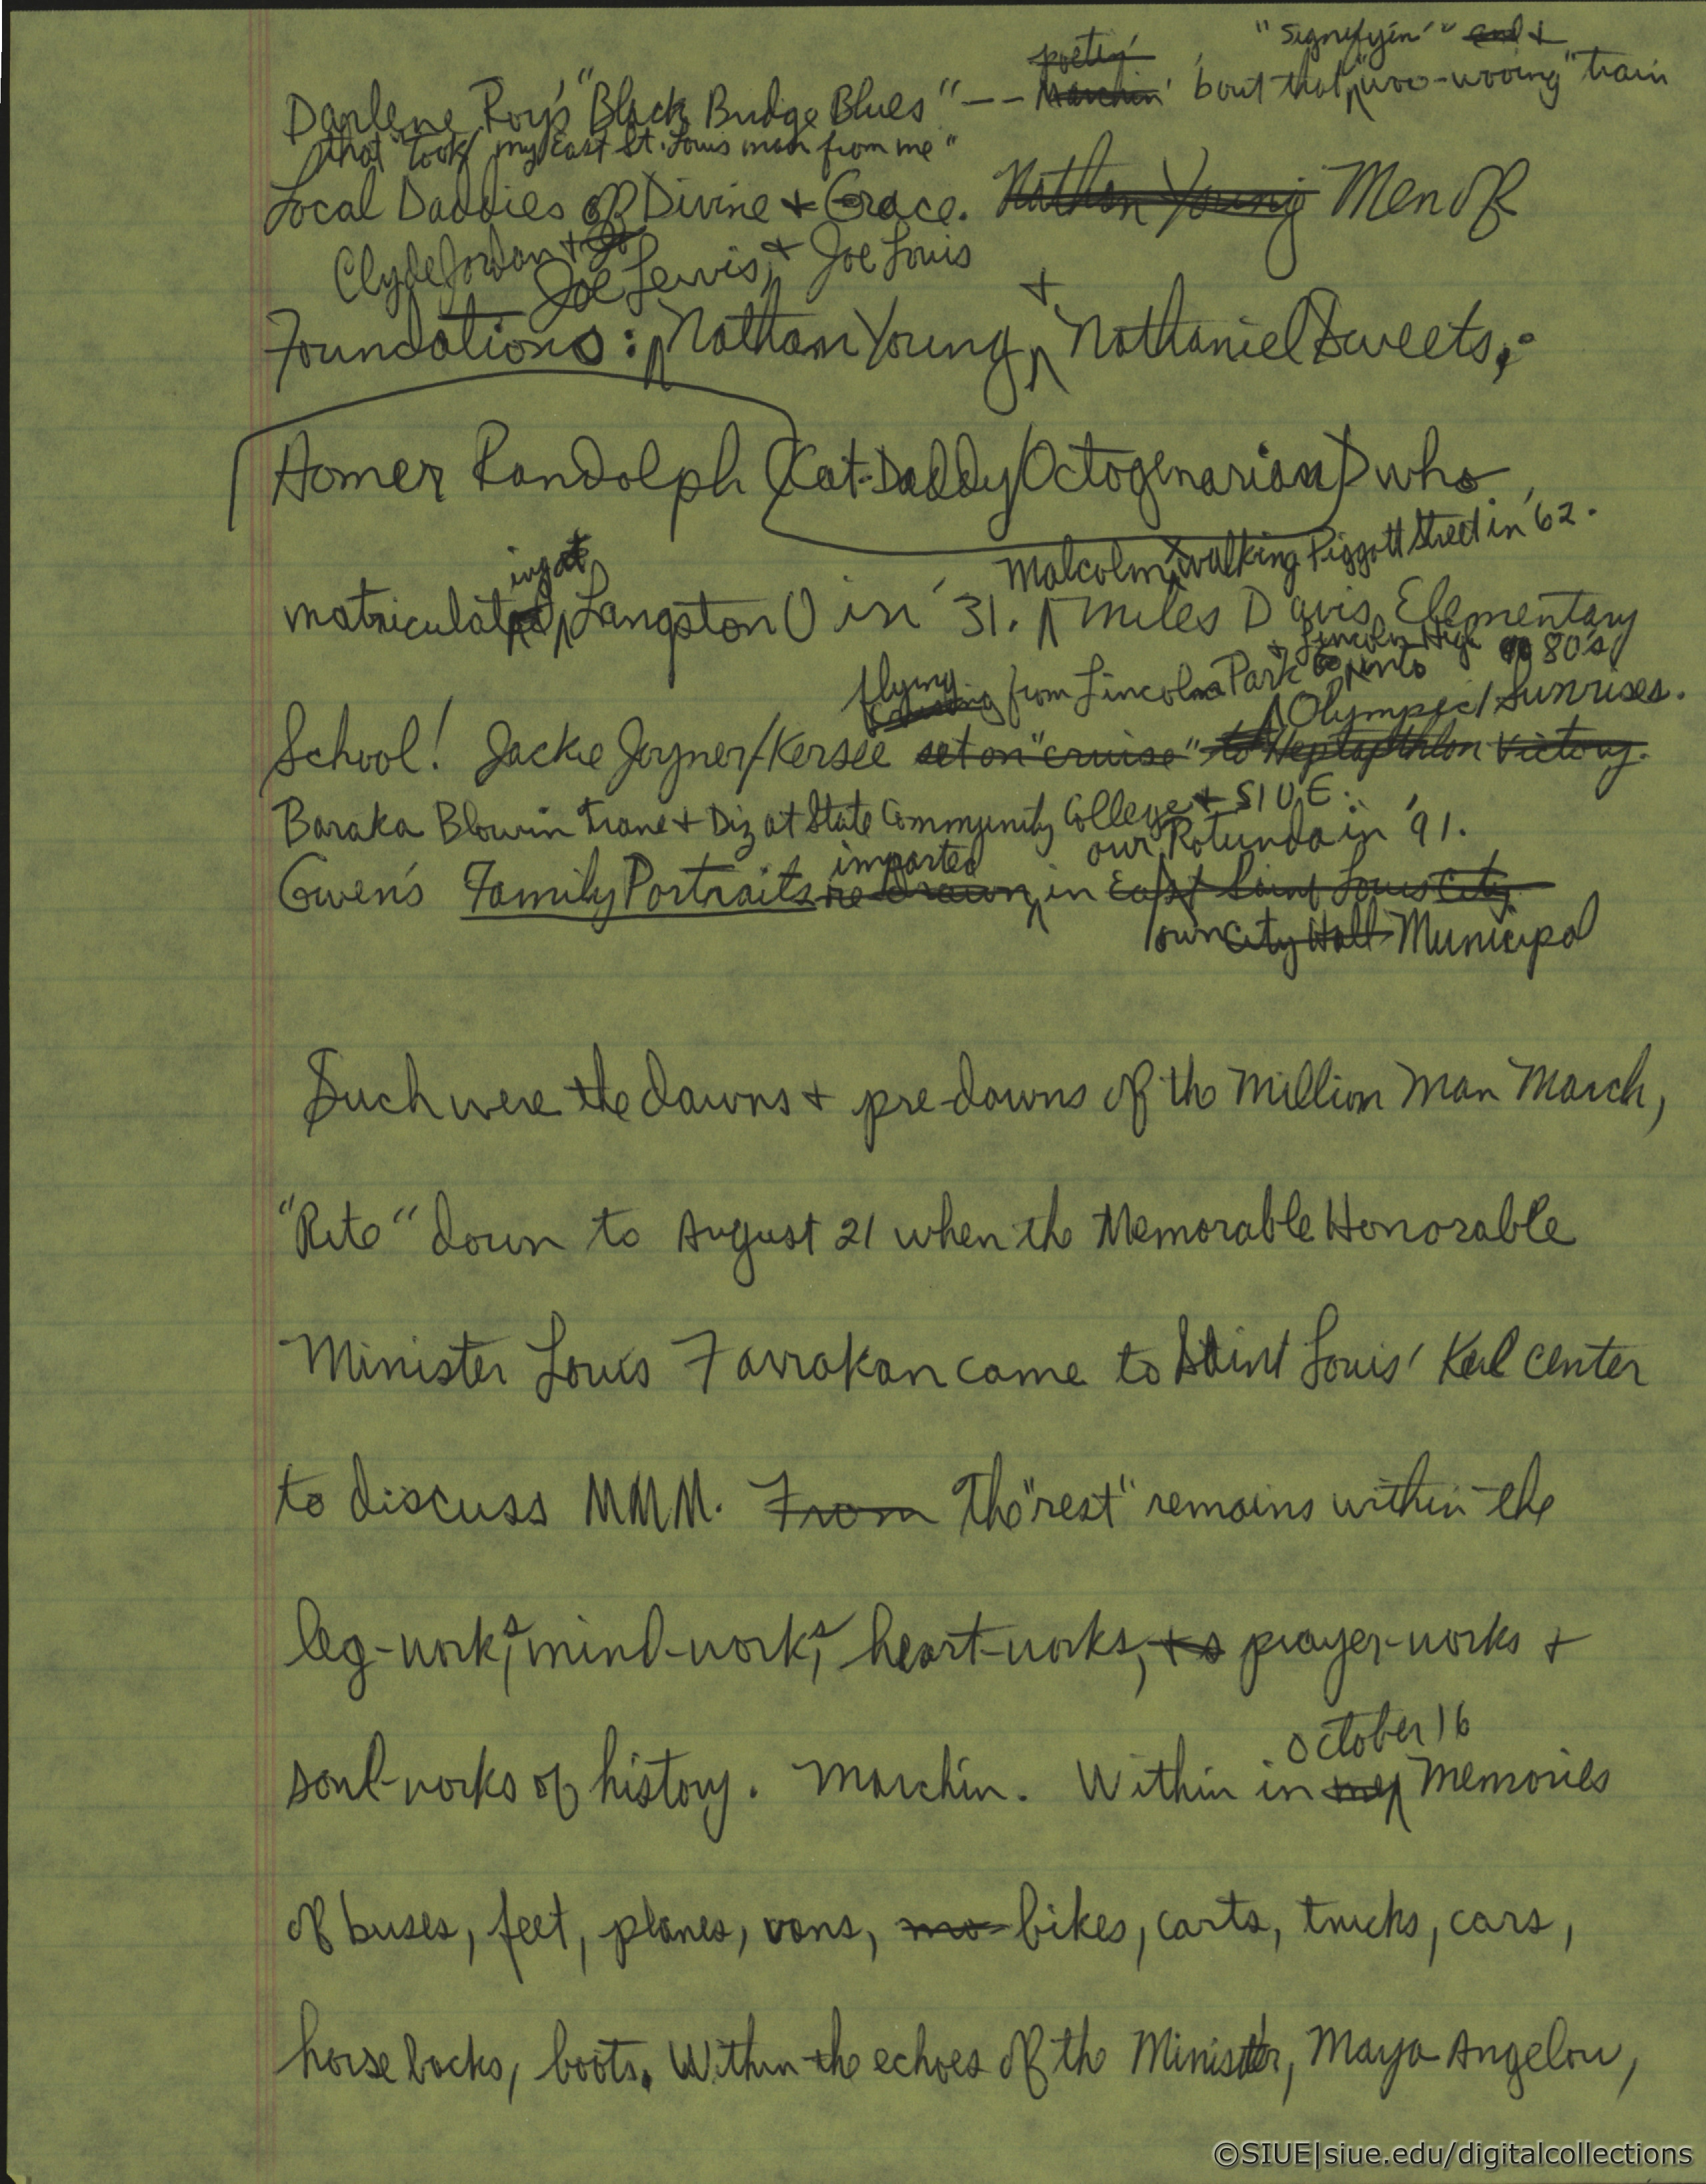 "Signifyin'" and +
poetin'
Darlene Roy's "Black Bridge Blues" -- Marchin' 'bout that "woo-wooing" train
that "took my East St. Louis man from me"
Local Daddies of Divine + Grace. Nathan Young Men of
Clyde Jordan + Jo Joe Lewis, + Joe Louis
+
Foundations: Nathan Young, Nathaniel Sweets;
Homer Randolph (Kat-Daddy/Octogenarian) who
ing at
matriculated Langston U in '31. Miles Davis Elementary
Malcolm X walking Piggott Street in '62.
+ Lincoln High
flying from Lincoln Park into 80's
Olympic/Sunrises.
School! Jackie Joyner/Kersee set on "cruise" to Heptathlon Victory.
Baraka Blowin Trane + Diz at State Community College + SIUE.
imported our Rotunda in '91.
Gwen's Family Portraits re-drawn in East Saint Louis City
own City Hall Municipal
Such were the dawns + pre-dawns of the Million Man March,
"Rite" down to August 21 when the Memorable Honorable
Minister Louis Farrakan came to Saint Louis' Keil Center
to discuss MMM. From The "rest" remains within the
leg-works, mind-works, heart-works, +s prayer-works +
soul-works of history. Marchin. Within in my Memories
October 16
of buses, feet, planes, vans, mo bikes, carts, trucks, cars,
horse backs, boots. Within the echoes of the Minister, Maya Angelou,
©SIUE|siue.edu/digitalcollections